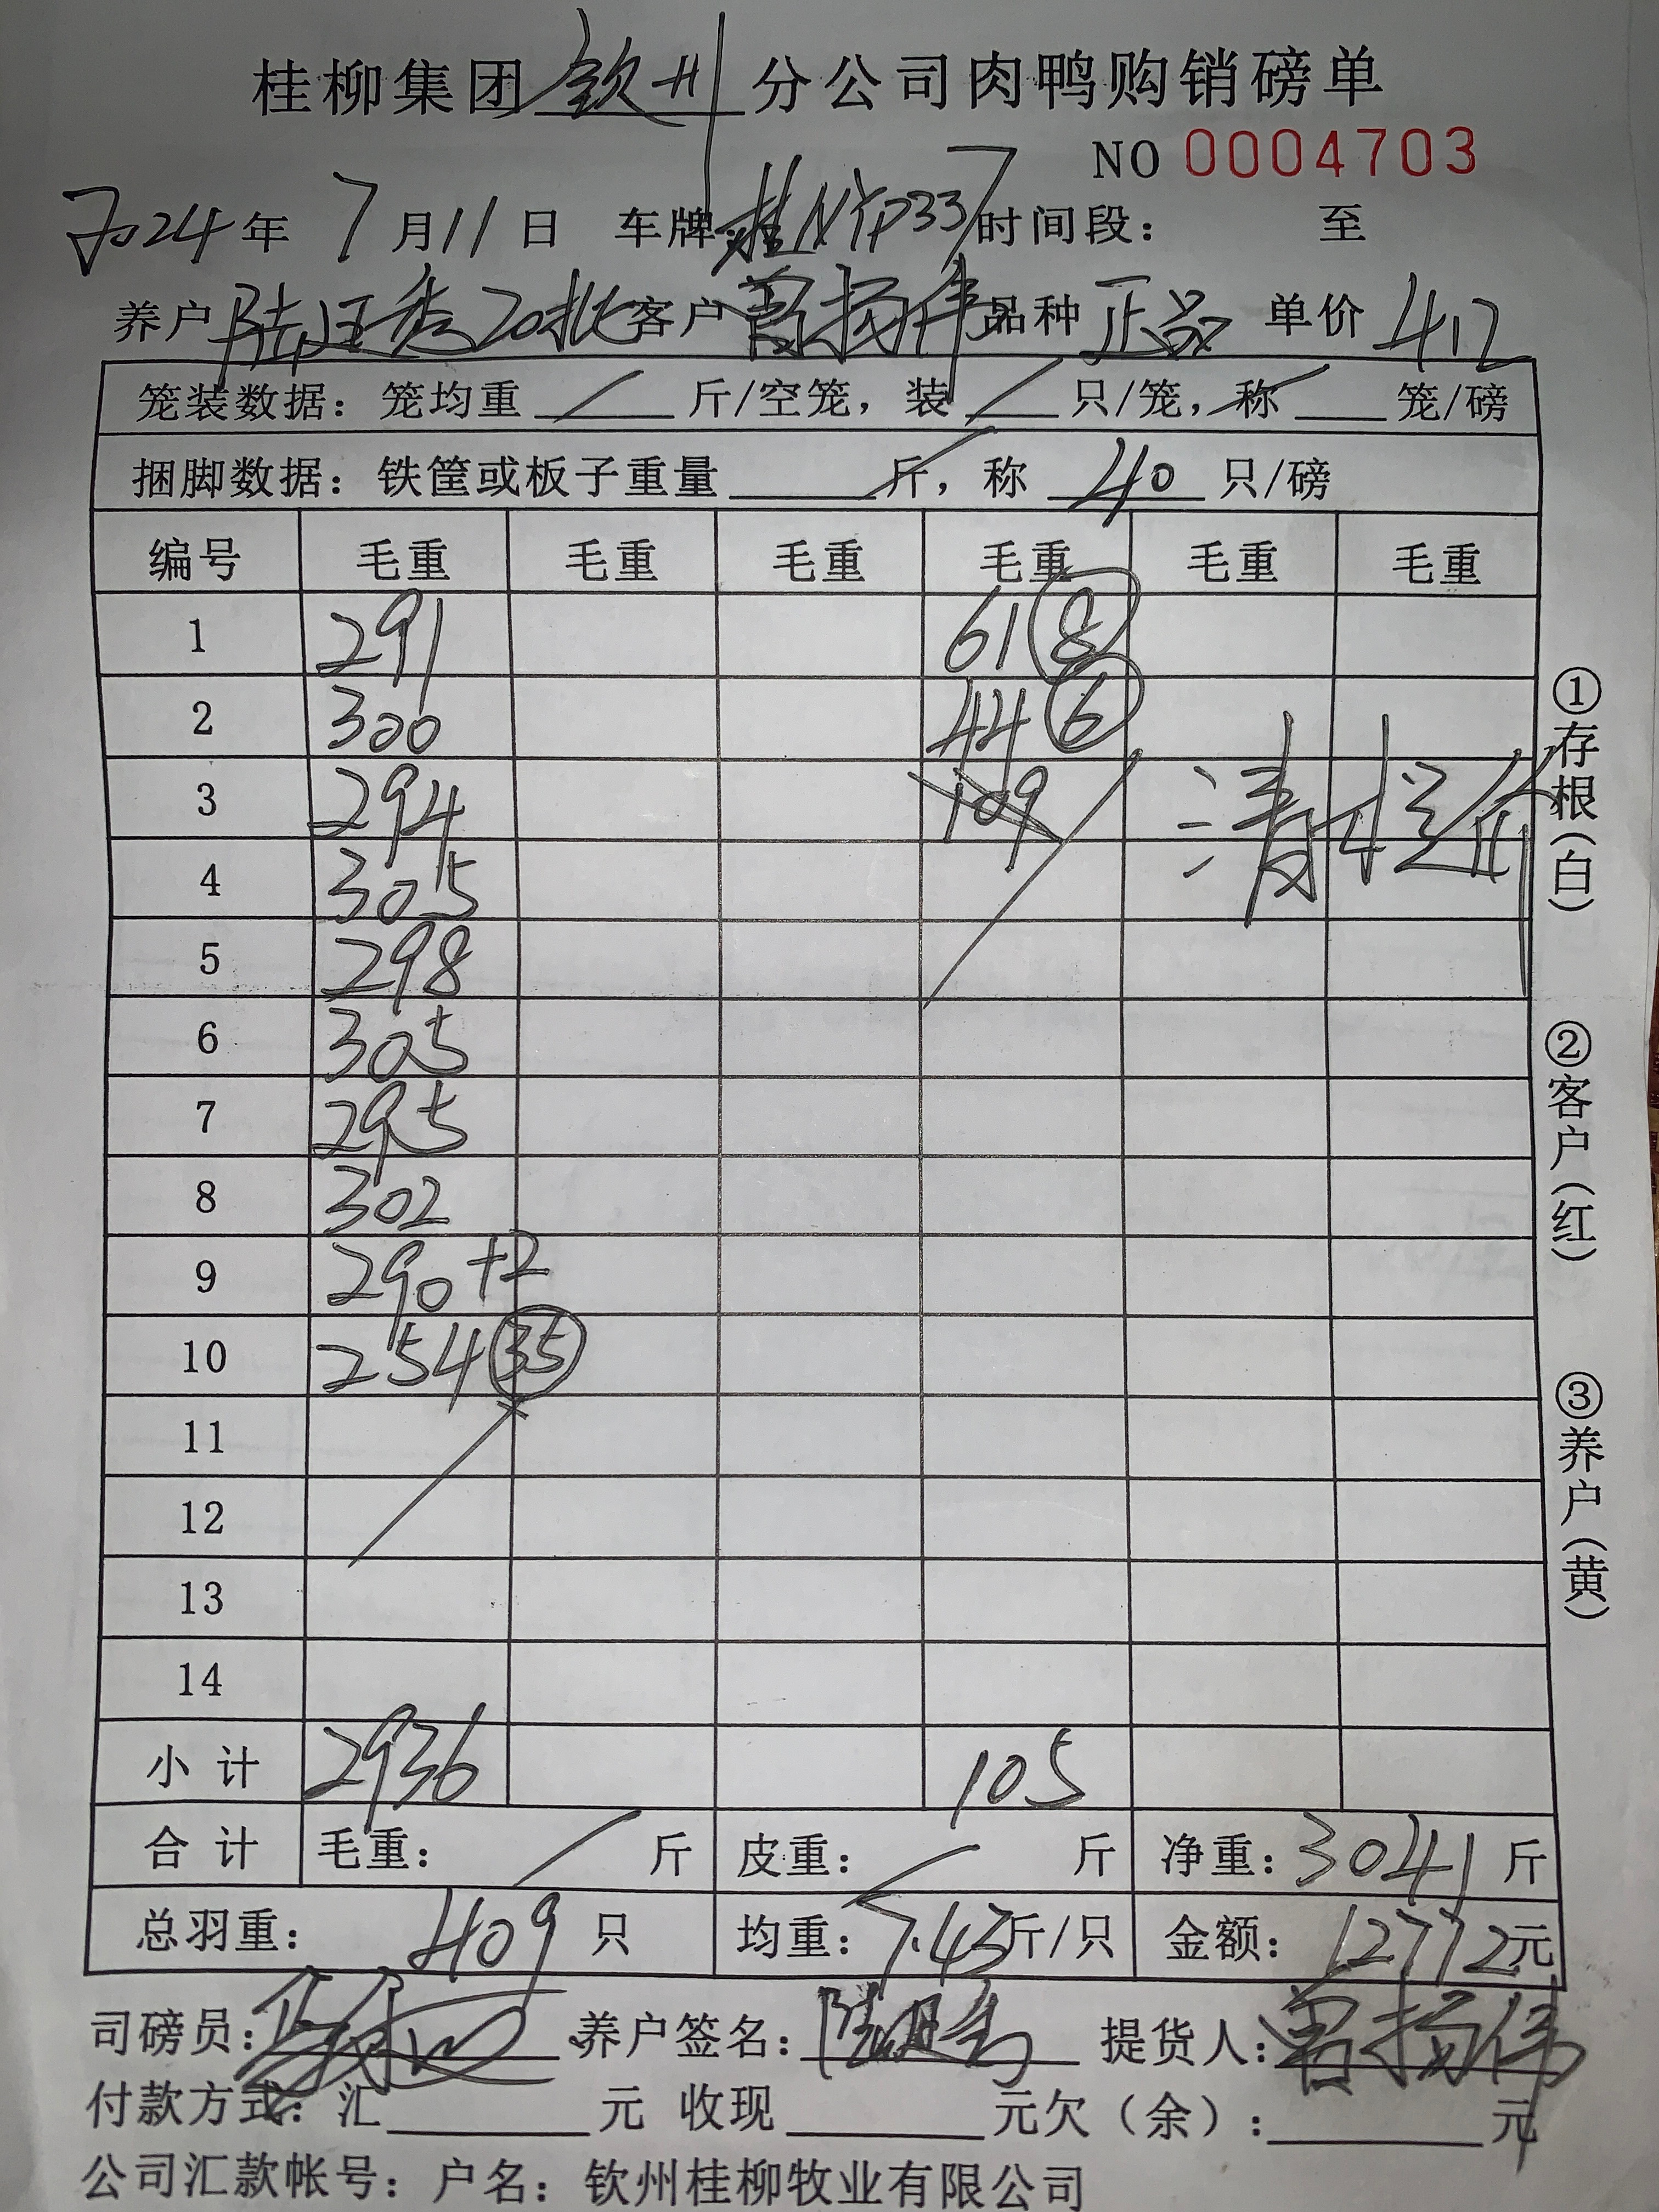 桂柳集团钦州分公司肉鸭购销磅单
NO 0004703
2024年 7月11日 车牌:桂NYP337 时间段: 至
养户 陆旺秀20批 客户 曾扬伟 品种 正品 单价 4.12
笼装数据:笼均重 / 斤/空笼,装 / 只/笼,称 / 笼/磅
捆脚数据:铁筐或板子重量 / 斤,称 40 只/磅
编号 毛重 毛重 毛重 毛重 毛重 毛重
1 291 61 8
2 300 44 6
3 294 109 清栏价
4 305
5 298
6 305
7 295
8 302
9 290+2
10 254 35
11
12
13
14
小计 2936 105
合计 毛重: / 斤 皮重: / 斤 净重:3041斤
总羽重: 409 只 均重:7.43斤/只 金额:12772元
司磅员: 养户签名: 提货人:曾扬伟
付款方式:汇 元 收现 元欠(余): 元
公司汇款帐号:户名:钦州桂柳牧业有限公司
①存根(白)
②客户(红)
③养户(黄)